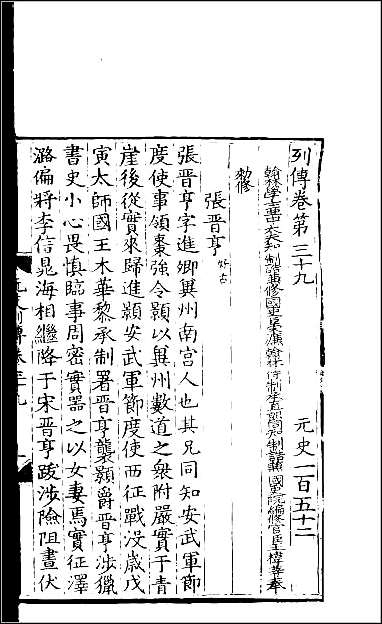 列傳卷第三十九　元史一百五十二
翰林學士亞中大夫知制誥兼修國史臣宋濂翰林待制承直郎同知制誥兼國史院編修官臣王禕等奉
勑修
張晋亨 好古
張晋亨字進卿冀州南宫人也其兄同知安武軍節
度使事領棗強令顥以冀州數道之衆附嚴實于青
崖後從實來歸進顥安武軍節度使西征戰没歳戊
寅太師國王木華黎承制署晋亨襲顥爵晋亨涉獵
書史小心畏慎臨事周密實器之以女妻焉實征澤
潞偏將李信晁海相繼降于宋晋亨跋涉險阻晝伏